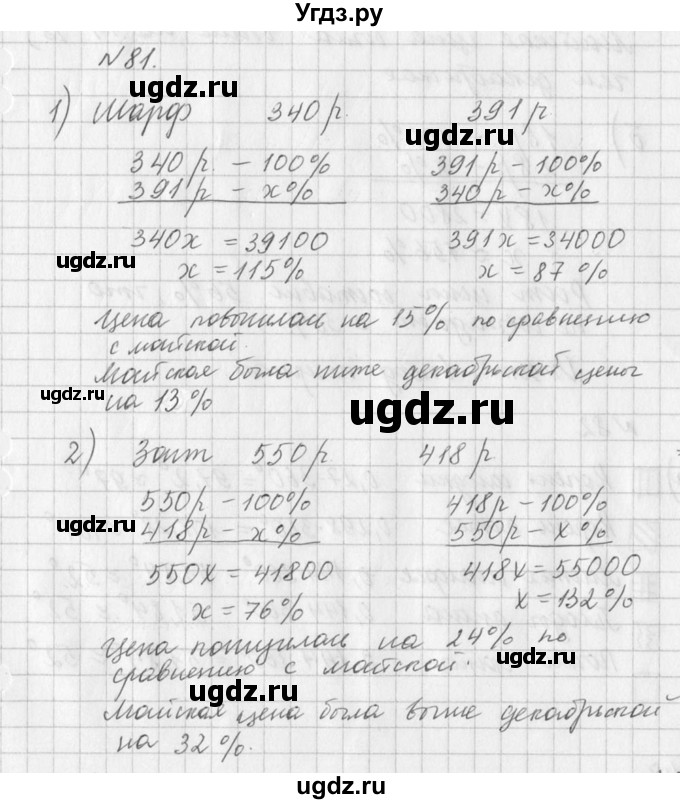 Угдз.ру
№81.
1) Шарф 340 р. 391 р
ugdz.ru
340 р. – 100% 391 р – 100%
ugdz.ru
391 р – х% 340 р – х%
340х = 39100 391х = 34000
ugdz.ru
х = 115% х = 87 %
Цена повысилась на 15% по сравнению
с майской.
ugdz.ru
Майская была ниже декабрьской цены
ugdz.ru
на 13 %
ugdz.ru
2) Зонт 550 р 418 р
ugdz.ru
550 р – 100% 418 р – 100%
ugdz.ru
418 р – х% 550 р – х %
550х = 41800 418х = 55000
х = 76% х = 132%
Цена понизилась на 24% по
ugdz.ru
сравнению с майской.
ugdz.ru
Майская цена была выше декабрьской
на 32 %.
ugdz.ru
ugdz.ru
Угдз.ру